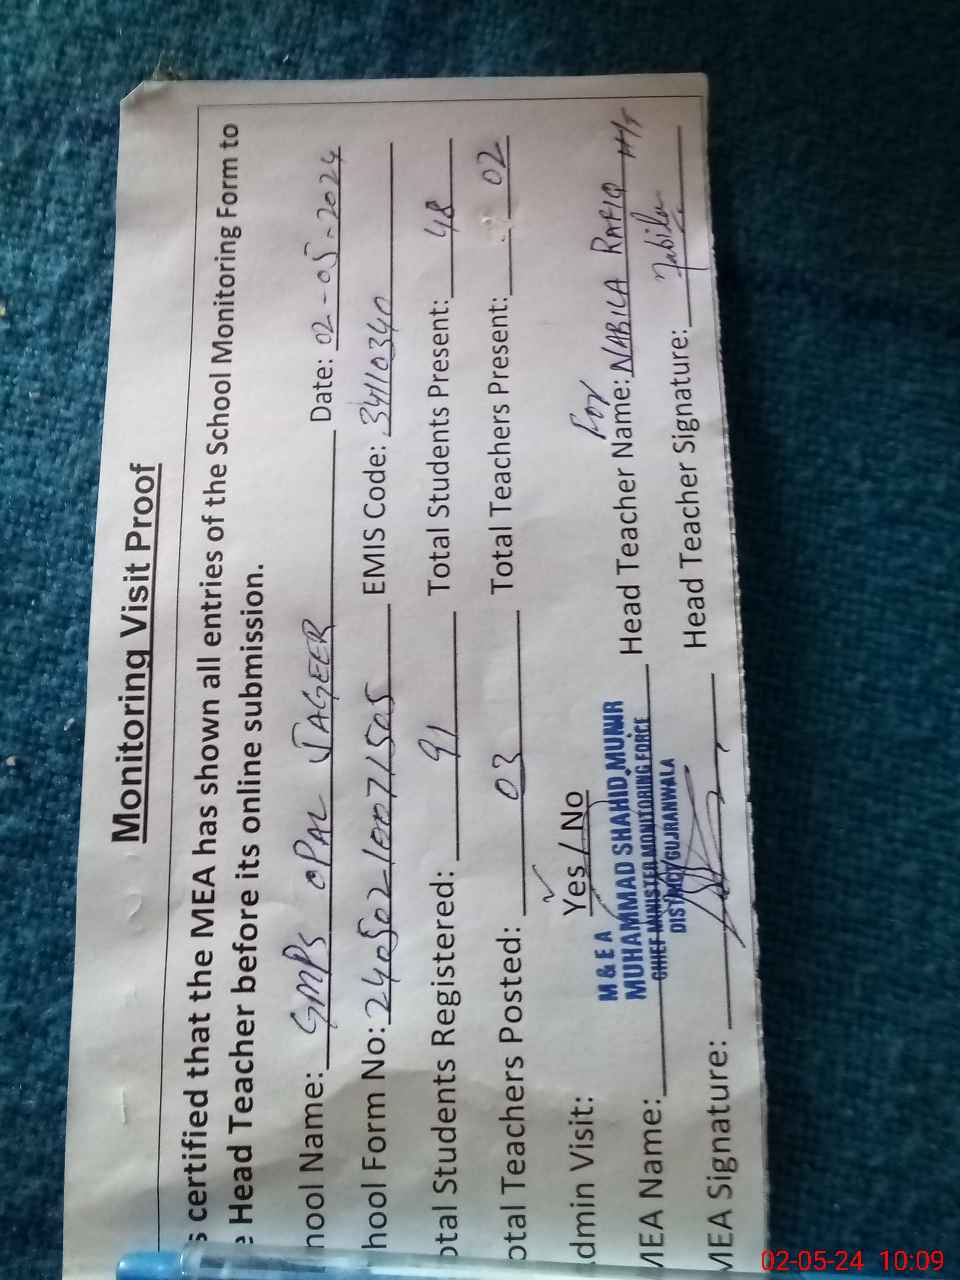 Monitoring Visit Proof
s certified that the MEA has shown all entries of the School Monitoring Form to
e Head Teacher before its online submission.
hool Name: GMPS OPAL JAGEER Date: 02-05-2024
hool Form No: 24050210071505 EMIS Code: 34110340
otal Students Registered: 91 Total Students Present: 48
otal Teachers Posted: 03 Total Teachers Present: 02
dmin Visit: Yes / No
M & E A
MUHAMMAD SHAHID MUNIR
CHIEF MINISTER MONITORING FORCE
DISTRICT GUJRANWALA
MEA Name: Head Teacher Name: For NABILA RAFIQ H/T
MEA Signature: Head Teacher Signature: Nabila
02-05-24 10:09